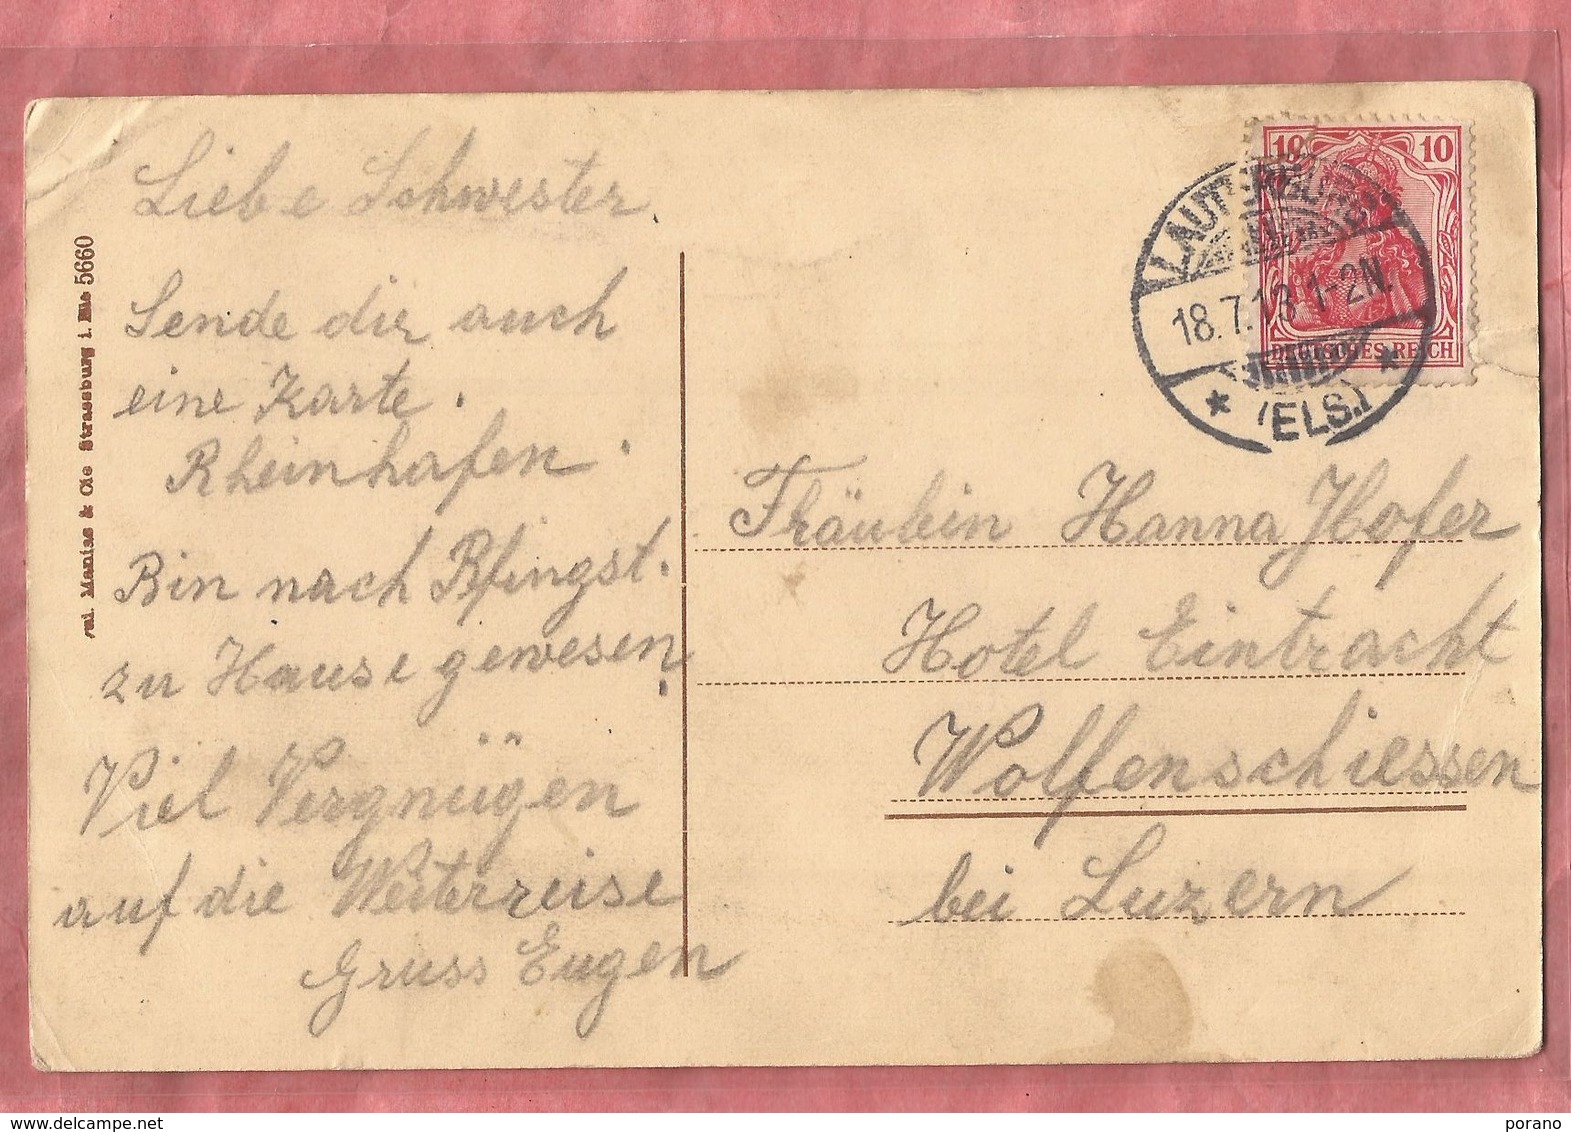 Liebe Schwester.
Sende dir auch
eine Karte.
Rheinhafen.
Bin nach Pfingst.
zu Hause gewesen.
Viel Vergnügen
auf die Weiterreise
Gruss Eugen
Manias & Cie Strassburg i. Els 5660
10 10
DEUTSCHES REICH
LAUTERBURG
18.7.13 1-2N.
* (ELS.) *
Fräulein Hanna Hofer
Hotel Eintracht
Wolfenschiessen
bei Luzern
porano